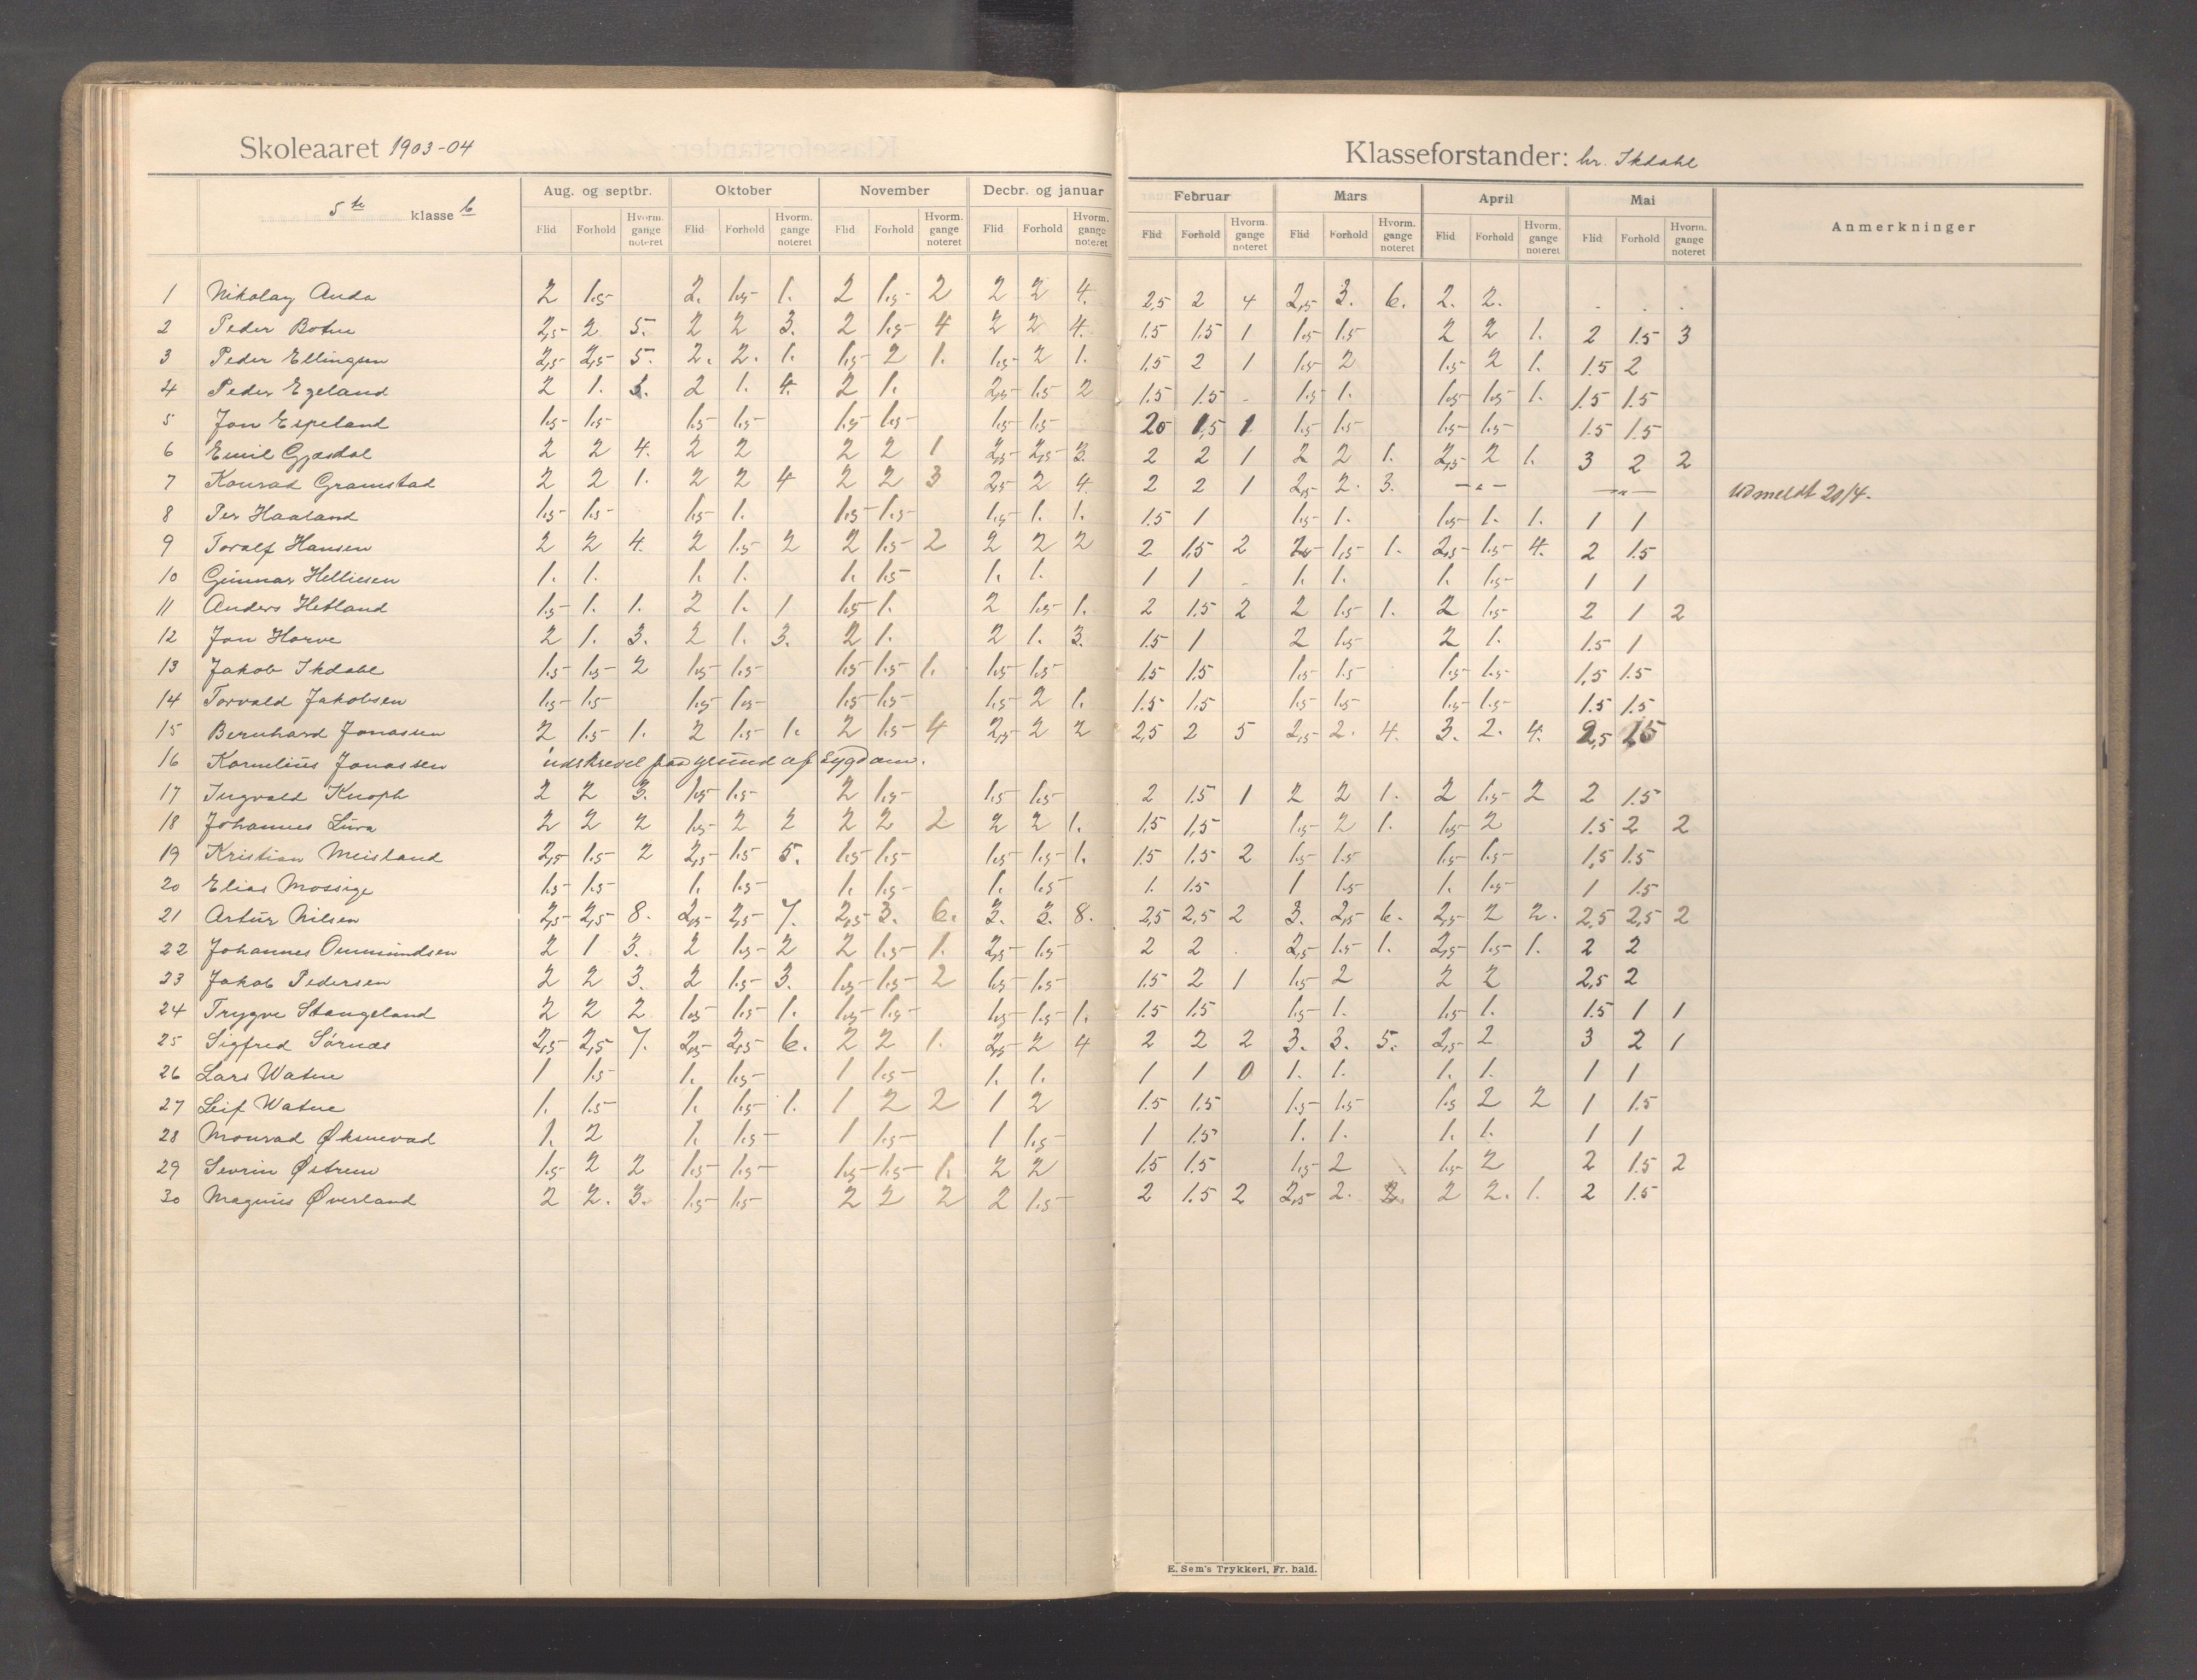 Skoleaaret 1903-04
5te klasse b
Aug. og septbr. Oktober November Decbr. og januar
Flid Forhold Hvorm. gange noteret Flid Forhold Hvorm. gange noteret Flid Forhold Hvorm. gange noteret Flid Forhold Hvorm. gange noteret
1 Nikolay Anda 2 1.5 2. 1.5 1. 2 1.5 2 2 2 4.
2 Peder Botne 2,5 2 5. 2 2 3. 2 1.5 4 2 2 4.
3 Peder Ellingsen 2,5 2,5 5. 2. 2. 1. 1.5 2 1. 1.5 2 1.
4 Peder Egeland 2 1. 3. 2 1. 4. 2 1. 2,5 1.5 2
5 Jon Espeland 1.5 1.5 1.5 1.5 1.5 1.5 1.5 1.5
6 Emil Gjesdal 2 2 4. 2 2 2 2 1 2,5 2,5 3.
7 Konrad Gramstad 2 2 1. 2 2 4 2 2 3 2,5 2 4.
8 Per Haaland 1.5 1.5 1.5 1. 1.5 1.5 1.5 1. 1.
9 Toralf Hansen 2 2 4. 2 1.5 2 2 1.5 2 2 2 2
10 Gunnar Helliesen 1. 1. 1. 1. 1. 1.5 1. 1.
11 Anders Hetland 1.5 1. 1. 2 1. 1 1.5 1. 2 1.5 1.
12 Jon Horve 2 1. 3. 2 1. 3. 2 1. 2 1. 3.
13 Jakob Ikdahl 1.5 1.5 2 1.5 1.5 1.5 1.5 1. 1.5 1.5
14 Torvald Jakobsen 1.5 1.5 1.5 1.5 1.5 1.5 1.5 2 1.
15 Bernhard Jonassen 2 1.5 1. 2 1.5 1. 2 1.5 4 2,5 2 2
16 Kornelius Jonassen udskrevet paa grund af Sygdom.
17 Ingvald Knoph 2 2 3. 1.5 1.5 2 1.5 1.5 1.5
18 Johannes Lura 2 2 2 1.5 2 2 2 2 2 2 2 1.
19 Kristian Meisland 2,5 1.5 2 2,5 1.5 5. 1.5 1.5 1.5 1.5 1.
20 Elias Mossige 1.5 1.5 1. 1.5 1. 1.5 1. 1.5
21 Artur Nilsen 2,5 2,5 8. 2,5 2,5 7. 2,5 3. 6. 3. 3. 8.
22 Johannes Ommundsen 2 1 3. 2 1.5 2 2 1.5 1. 2,5 1.5
23 Jakob Pedersen 2 2 3. 2 1.5 3. 1.5 1.5 2 1.5 1.5
24 Trygve Stangeland 2 2 2 1.5 1.5 1. 1.5 1.5 1.5 1.5 1.
25 Sigfred Sørnæs 2,5 2,5 7. 2,5 2,5 6. 2 2 1. 2,5 2 4
26 Lars Watne 1 1.5 1. 1.5 1 1.5 1. 1.
27 Leif Watne 1. 1.5 1. 1.5 1. 1 2 2 1 2
28 Monrad Øksnevad 1. 2 1. 1.5 1 1.5 1 1.5
29 Sevrin Østrem 1.5 2 2 1.5 1.5 1.5 1.5 1. 2 2
30 Magnus Øverland 2 2. 3. 1.5 1.5 2 2 2 2 1.5
Klasseforstander: hr. Ikdahl
Februar Mars April Mai Anmerkninger
Flid Forhold Hvorm. gange noteret Flid Forhold Hvorm. gange noteret Flid Forhold Hvorm. gange noteret Flid Forhold Hvorm. gange noteret
2,5 2 4 2,5 3. 6. 2. 2. . . .
1.5 1.5 1 1.5 1.5 2 2 1. 2 1.5 3
1.5 2 1 1.5 2 1.5 2 1. 1.5 2
1.5 1.5 - 1.5 1. 1.5 1.5 1. 1.5 1.5
20 1,5 1 1.5 1.5 1.5 1.5 1.5 1.5
2 2 1 2 2 1. 2,5 2 1. 3 2 2
2 2 1 2,5 2. 3. —"— —"— Udmeldt 20/4.
1.5 1 1.5 1. 1.5 1. 1. 1 1
2 1.5 2 2,5 1.5 1. 2,5 1.5 4. 2 1.5
1 1 - 1. 1. 1. 1.5 1 1
2 1.5 2 2 1.5 1. 2 1.5 2 1 2
1.5 1 2 1.5 2 1. 1.5 1
1.5 1.5 1.5 1.5 1.5 1.5 1,5 1.5
1.5 1.5 1.5 1.5 1.5 1.5 1.5 1.5
2,5 2 5 2,5 2. 4. 3. 2. 4. 2,5
2 1.5 1 2 2 1. 2 1.5 2 2 1.5
1,5 1,5 1.5 2 1. 1.5 2 1.5 2 2
1.5 1.5 2 1.5 1.5 1.5 1.5 1,5 1.5
1. 1.5 1 1.5 1. 1.5 1 1.5
2,5 2,5 2 3. 2,5 6. 2,5 2 2. 2,5 2,5 2
2 2 . 2,5 1.5 1. 2,5 1.5 1. 2 2
1.5 2 1 1.5 2 2 2 2,5 2
1.5 1.5 1.5 1. 1.5 1. 1.5 1 1
2 2 2 3. 3. 5. 2,5 2 3 2 1
1 1 0 1. 1. 1. 1. 1 1
1.5 1.5 1.5 1.5 1.5 2 2 1 1.5
1 1.5 1. 1. 1. 1. 1 1
1.5 1.5 1.5 2 1.5 2 2 1.5 2
2 1.5 2 2,5 2. 2. 2 2. 1. 2 1.5
E. Sem's Trykkeri, Fr. hald.